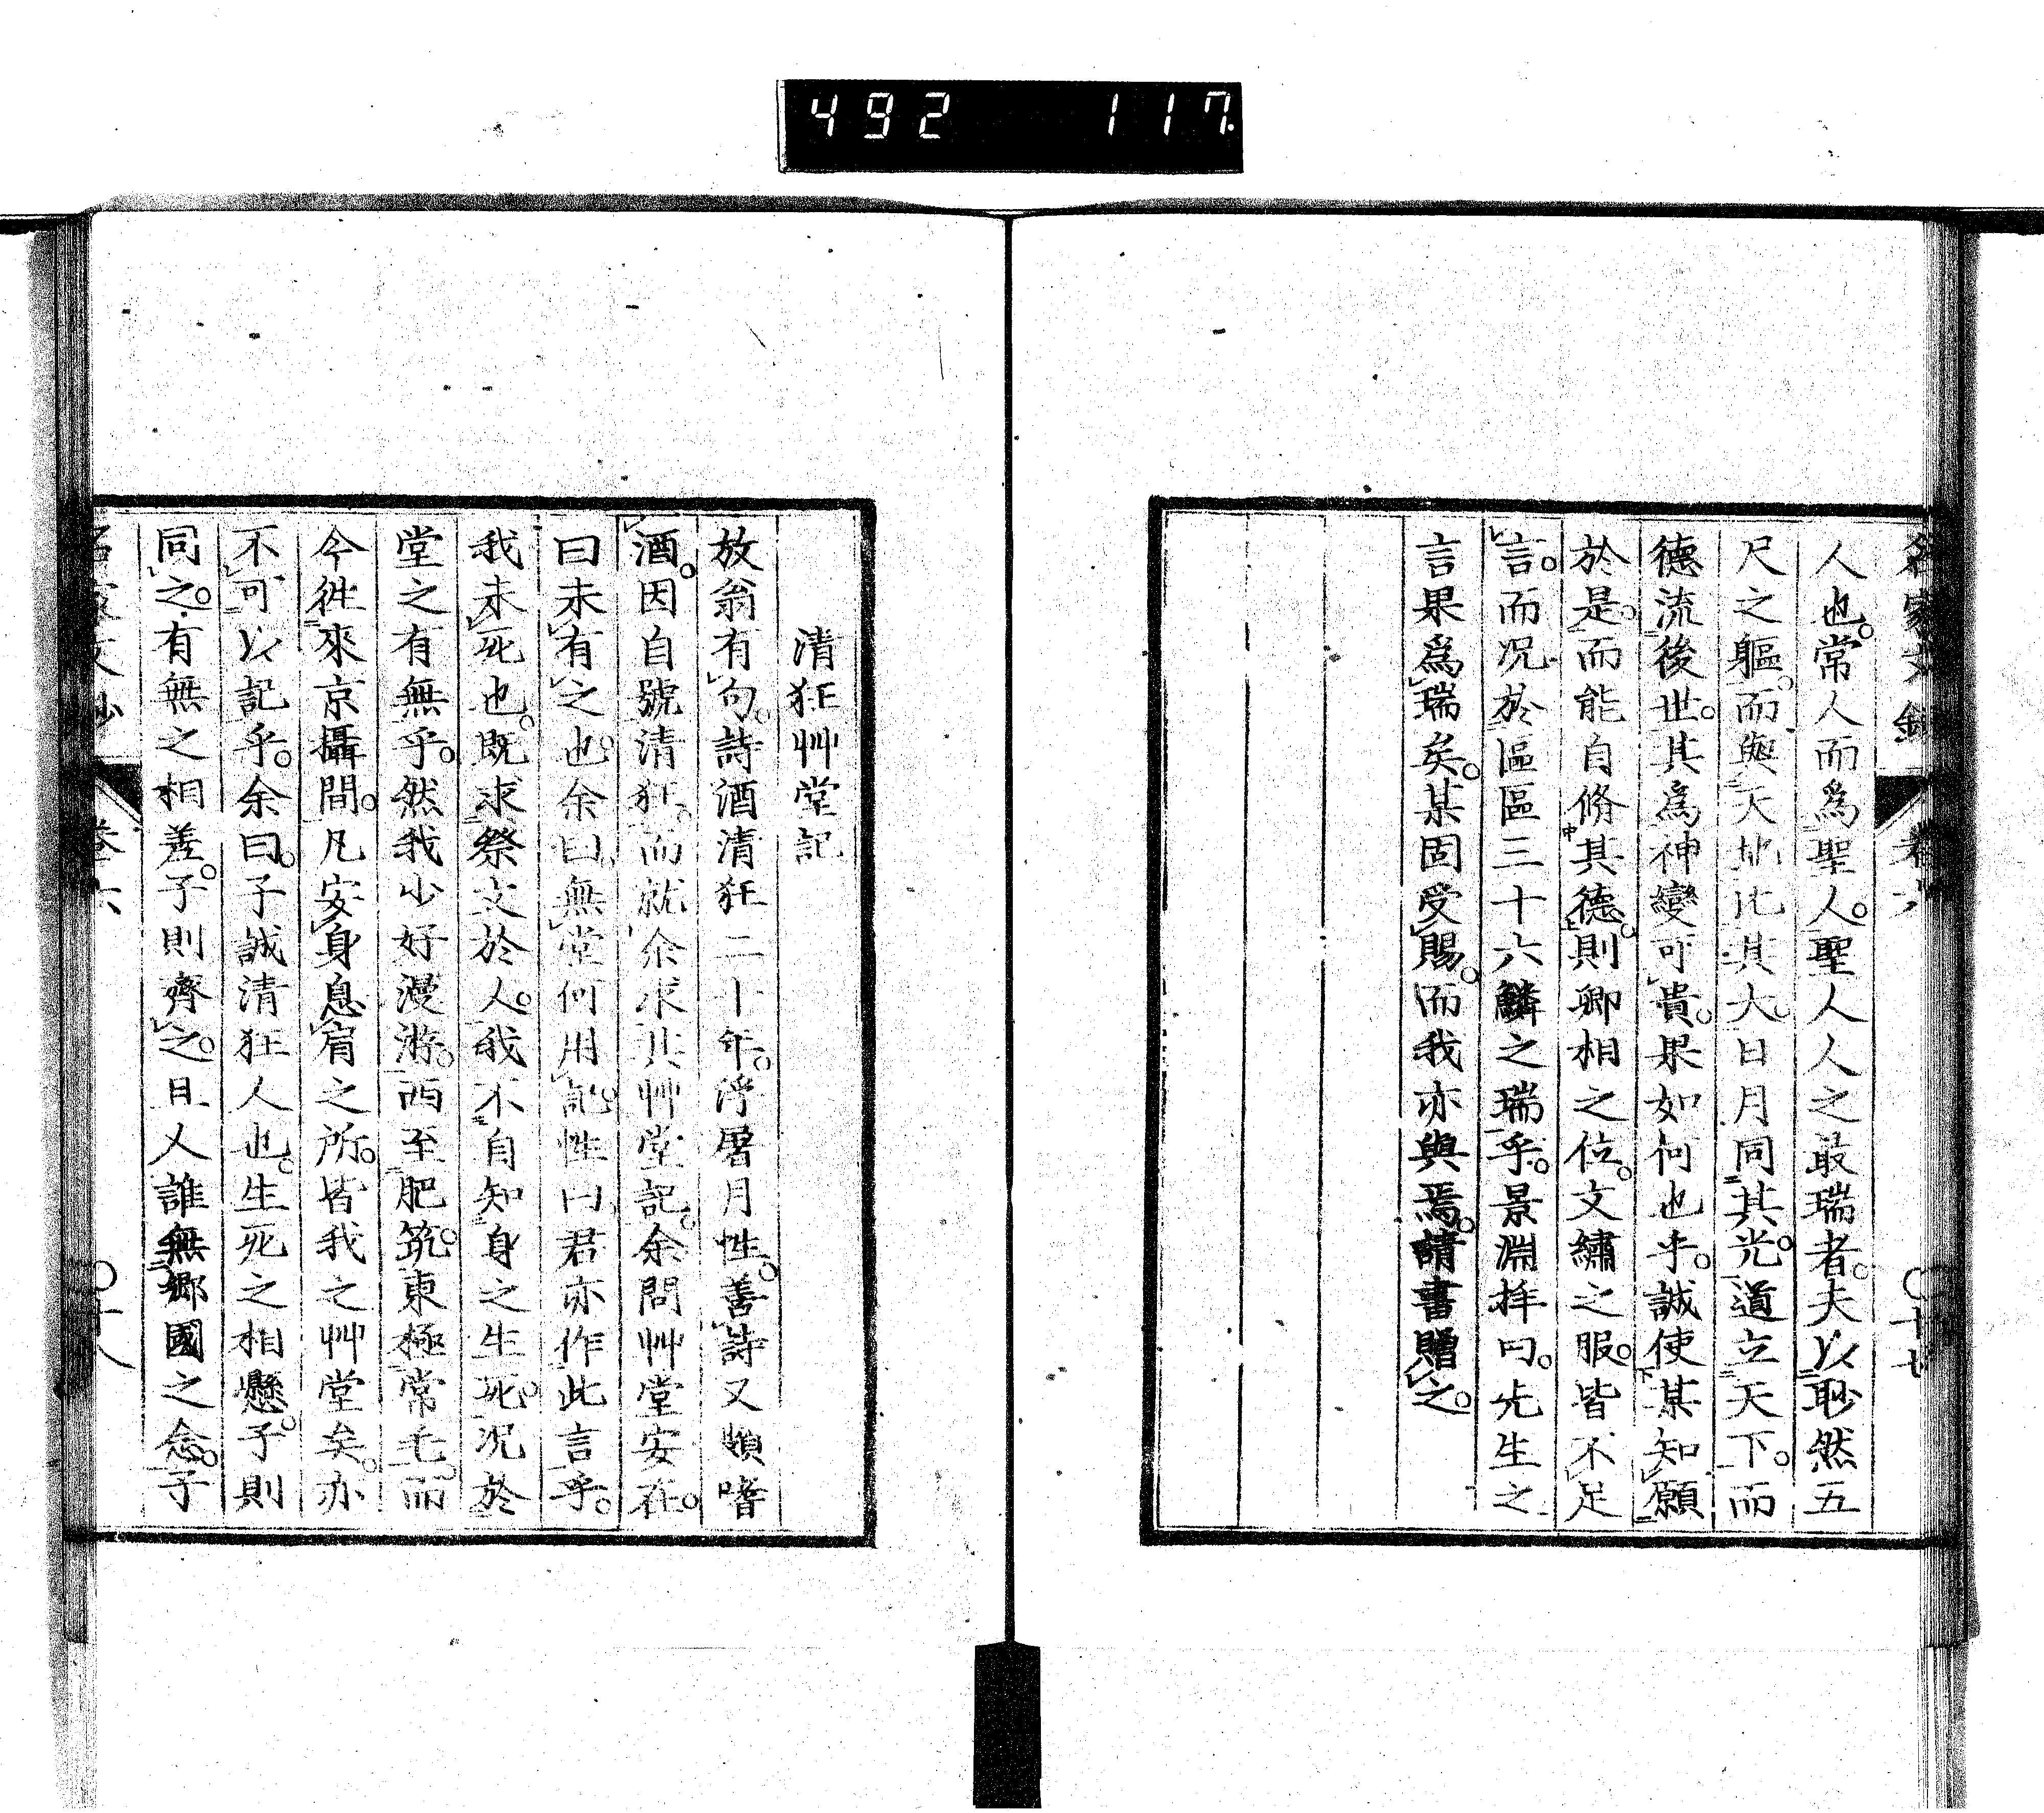 492 117.
人也。常人而爲聖人。聖人人之最瑞者。夫以眇然五
尺之軀。而與天地比其大。日月同其光。道立天下。而
德流後世。其爲神變可貴。果如何也乎。誠使某知願
於是。而能自脩其德。則卿相之位。文繡之服。皆不足
言。而况於區區三十六鱗之瑞乎。景淵拜曰。先生之
言果爲瑞矣。某固受賜。而我亦與焉。請書贈之。
清狂艸堂記
放翁有句。詩酒清狂二十年。浮屠月性。善詩又頗嗜
酒。因自號清狂。而就余求其艸堂記。余問艸堂安在。
曰未有之也。余曰。無堂何用記。性曰。君亦作此言乎。
我未死也。既求祭文於人。我不自知身之生死。况於
堂之有無乎。然我少好漫游。西至肥筑。東極常毛。而
今徃來京攝間。凡安身息肩之所。皆我之艸堂矣。亦
不可以記乎。余曰。子誠清狂人也。生死之相懸。子則
同之。有無之相差。子則齊之。且人誰無鄉國之念。子
卷六